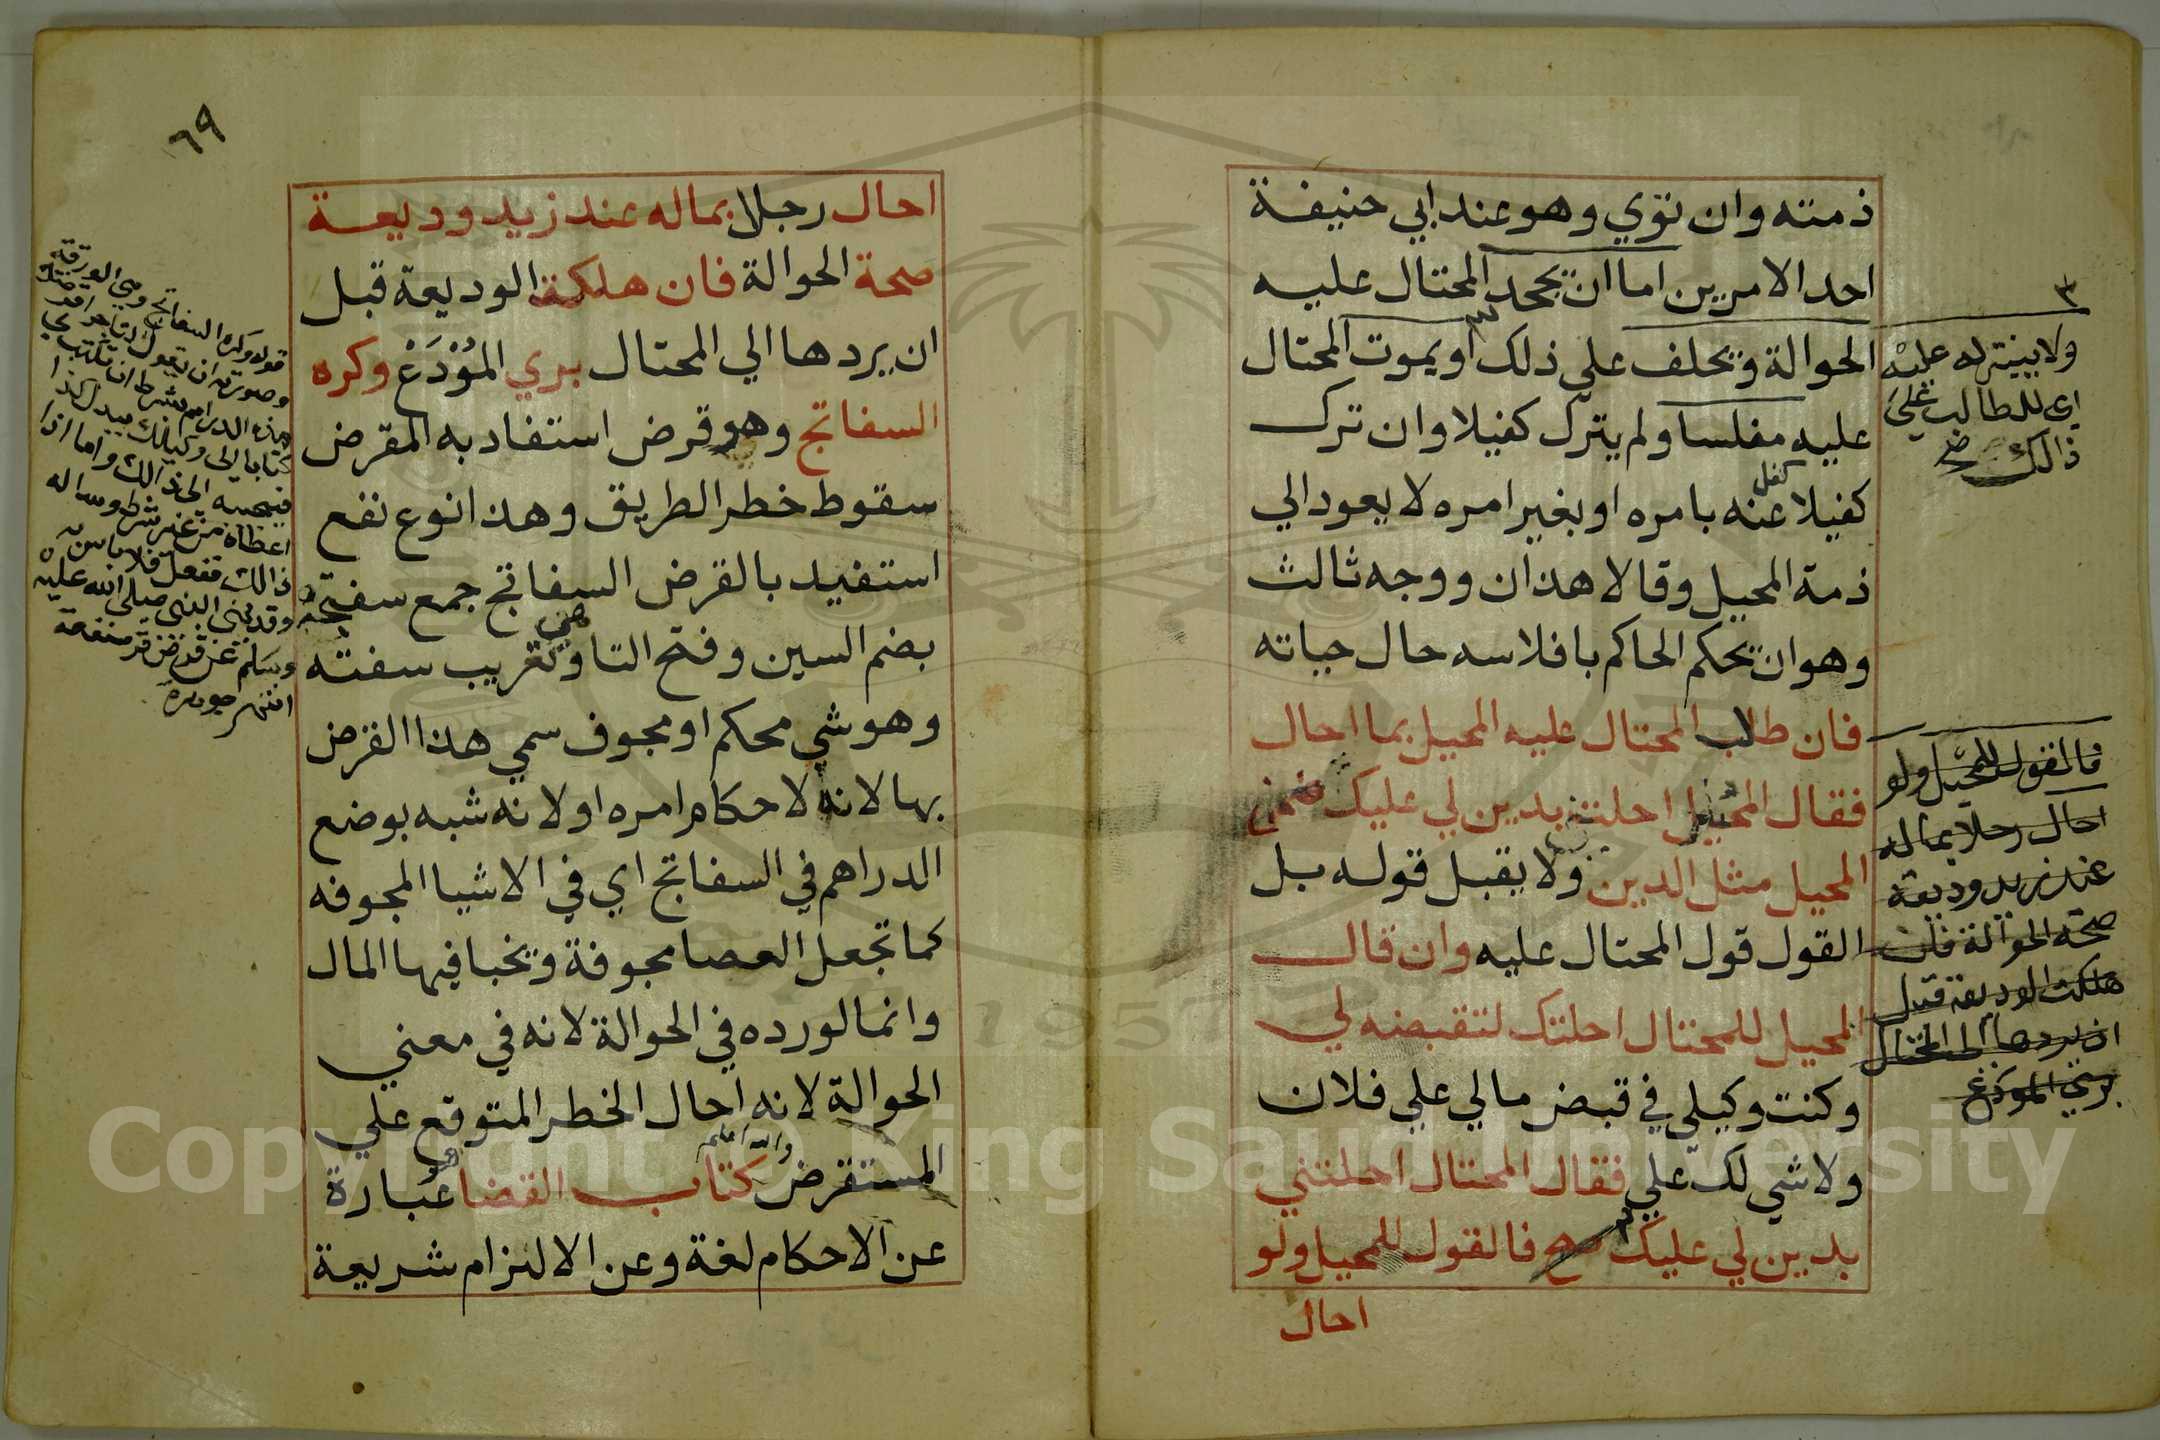 ذمته وان توي وهو عند ابي حنيفة
احد الامرين اما ان يجحد المحتال عليه
الحوالة ويحلف على ذلك او يموت المحتال
عليه مفلسا ولم يترك كفيلا وان ترك
كفل
كفيلا عنه بامره او بغير امره لا يعود الي
ذمة المحيل وقالا هذان ووجه ثالث
وهو ان يحكم الحاكم بافلاسه حال حياته
فان طالب المحتال عليه المحيل بما احال
فقال المحيل احلت بدين لي عليك ضمن
المحيل مثل الدين ولا يقبل قوله بل
القول قول المحتال عليه وان قال
المحيل للمحتال احلتك لتقبضه لي
وكنت وكيلي في قبض مالي علي فلان
ولا شي لك علي فقال المحتال احلتني
بدين لي عليك صح فالقول للمحيل ولو
احال
ولا بينة له عليه
اي للطالب علي
ذالك صح
فالقول للمحيل ولو
احال رجلا بماله
عند زيد وديعة
صحة الحوالة فان
هلكت الوديعة قبل
ان يردها الى المحتال
بري المودع
٦٩
احال رجلا بماله عند زيد وديعة
صحة الحوالة فان هلكة الوديعة قبل
ان يردها الي المحتال بري المُوْدَعْ وكره
السفاتج وهو قرض استفاد به المقرض
سقوط خطر الطريق وهذا نوع نفع
استفيد بالقرض السفاتج جمع سفتجة
بضم السين وفتح التا وتعريب سفته
وهو شي محكم او مجوف سمي هذا القرض
بها لانه لاحكام امره او لانه شبه بوضع
الدراهم في السفاتج اي في الاشيا المجوفه
كما تجعل العصا مجوفة ويخبا فيها المال
وانما لورده في الحوالة لانه في معني
الحوالة لانه احال الخطر المتوقع علي
والله اعلم
المستقرض كتاب القضا عبارة
عن الاحكام لغة وعن الالزام شريعة
قوله وكره السفاتج وهي الورقة
وصورته ان يقول لتاجر
هذه الدراهم بشرط ان تكتب لي
كتابا الى وكيلك ببلد كذا
ذالك واما اذا
اعطاه من غير شرط وساله
ذالك ففعل فلا باس به
وقد نهى النبي صلى الله عليه
وسلم عن قرض جر منفعة
انتهى جوهرة